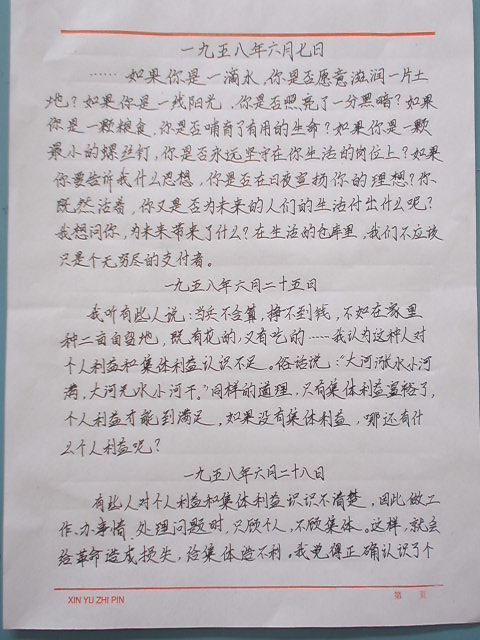 一九五八年六月七日
……如果你是一滴水,你是否愿意滋润一片土
地?如果你是一线阳光,你是否照亮了一分黑暗?如果
你是一颗粮食,你是否哺育了有用的生命?如果你是一颗
最小的螺丝钉,你是否永远坚守在你生活的岗位上?如果
你要告诉我什么思想,你是否在日夜宣扬你的理想?你
既然活着,你又是否为未来的人们的生活付出什么呢?
我想问你,为未来带来了什么?在生活的仓库里,我们不应该
只是个无穷尽的支付者。
一九五八年六月二十五日
我听有些人说:当兵不合算,挣不到钱,不如在家里
种二亩自留地,既有花的,又有吃的……我认为这种人对
个人利益和集体利益认识不足。俗话说:“大河涨水小河
满,大河无水小河干。”同样的道理,只有集体利益富裕了,
个人利益才能到满足,如果没有集体利益,哪还有什
么个人利益呢?
一九五八年六月二十八日
有些人对个人利益和集体利益识识不清楚,因此做工
作、办事情、处理问题时,只顾个人,不顾集体。这样,就会
给革命造成损失,给集体造不利。我觉得正确认识了个
XIN YU ZHI PIN
第 页